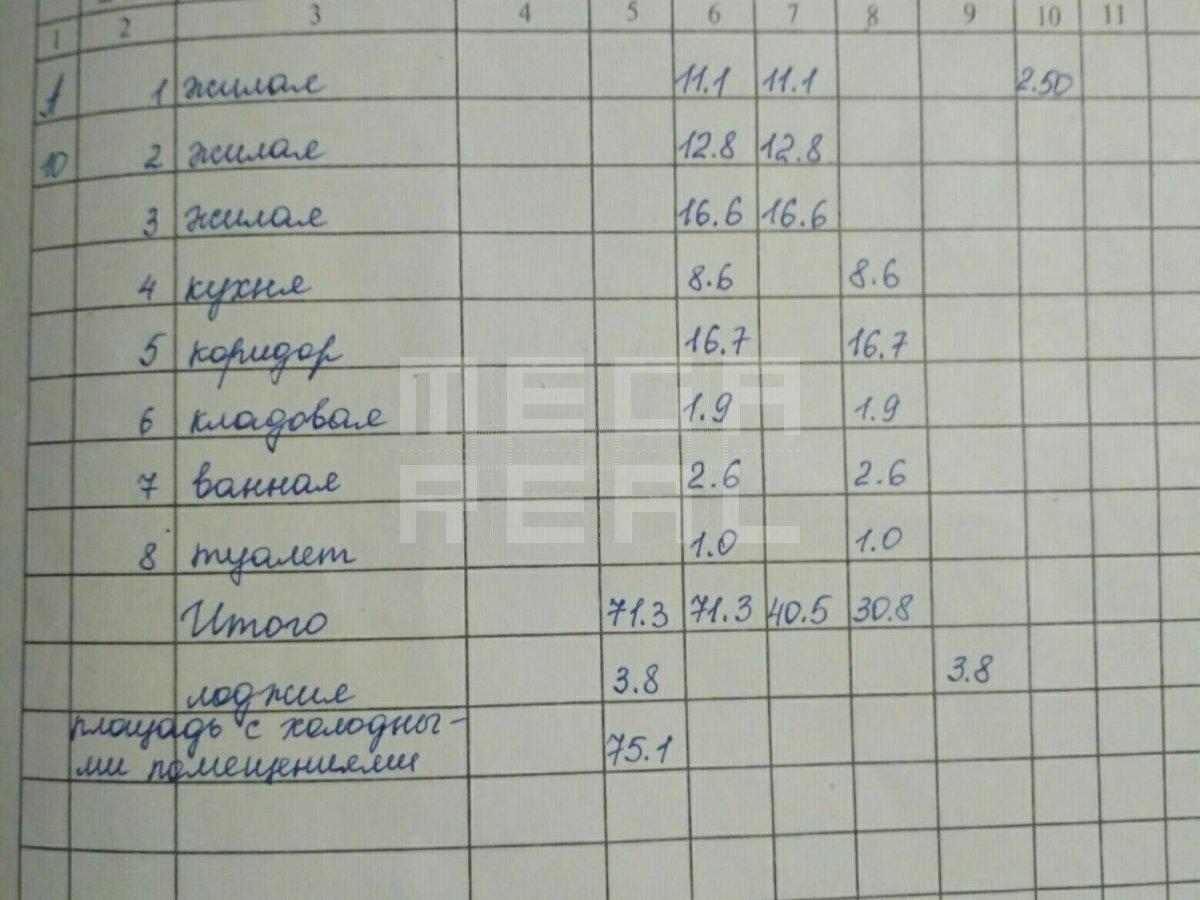 1 2 3 4 5 6 7 8 9 10 11
1 1 жилая 11.1 11.1 2.50
10 2 жилая 12.8 12.8
3 жилая 16.6 16.6
4 кухня 8.6 8.6
5 коридор 16.7 16.7
6 кладовая 1.9 1.9
7 ванная 2.6 2.6
8 туалет 1.0 1.0
Итого 71.3 71.3 40.5 30.8
лоджия 3.8 3.8
площадь с холодны-
ми помещениями 75.1
MEGA
REAL